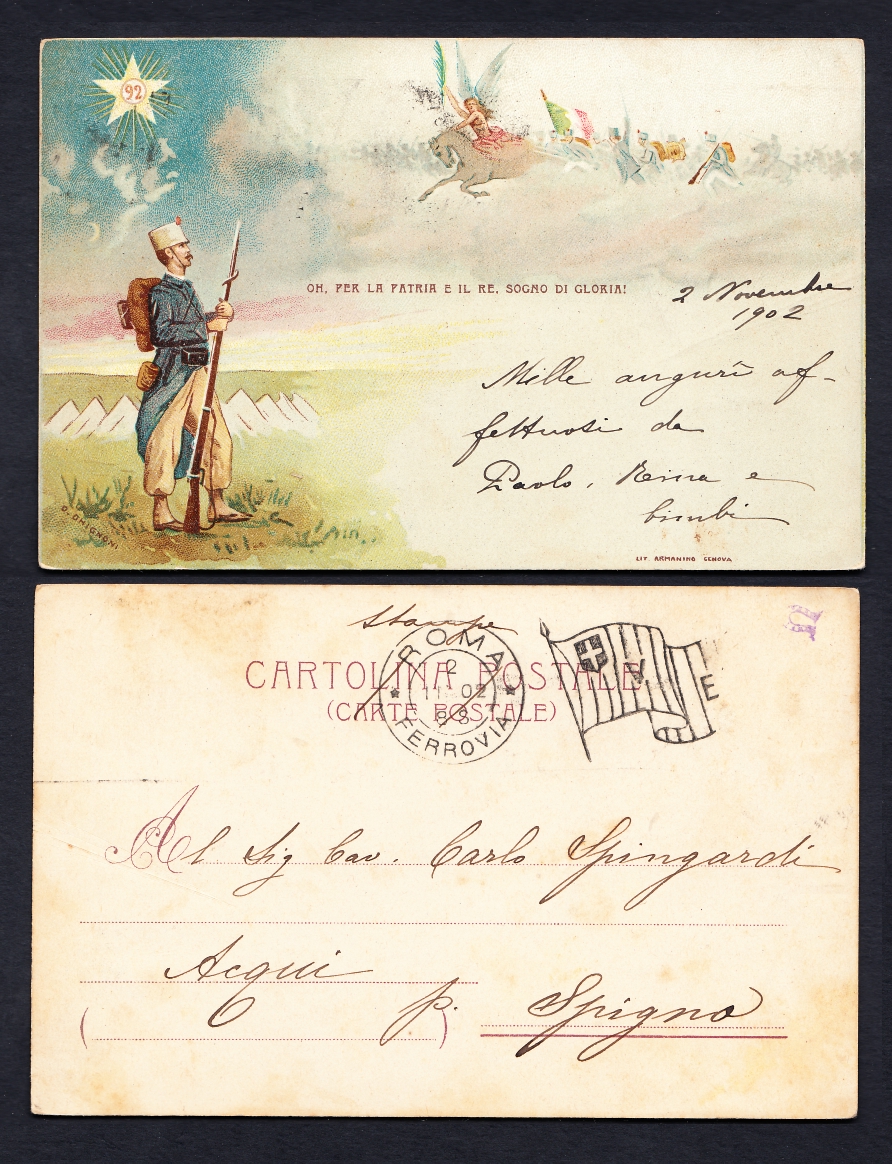 92
OH, PER LA PATRIA E IL RE, SOGNO DI GLORIA!
2 Novembre
1902
Mille augurî af-
fettuosi da
Paolo, Rema e
bimbi
D. GHIGNONI
LIT. ARMANINO GENOVA
Stampe
CARTOLINA POSTALE
(CARTE POSTALE)
ROMA
2
11 02
8 S
FERROVIA
V E
Al Sig Cav. Carlo Spingardi
Acqui
p. Spigno